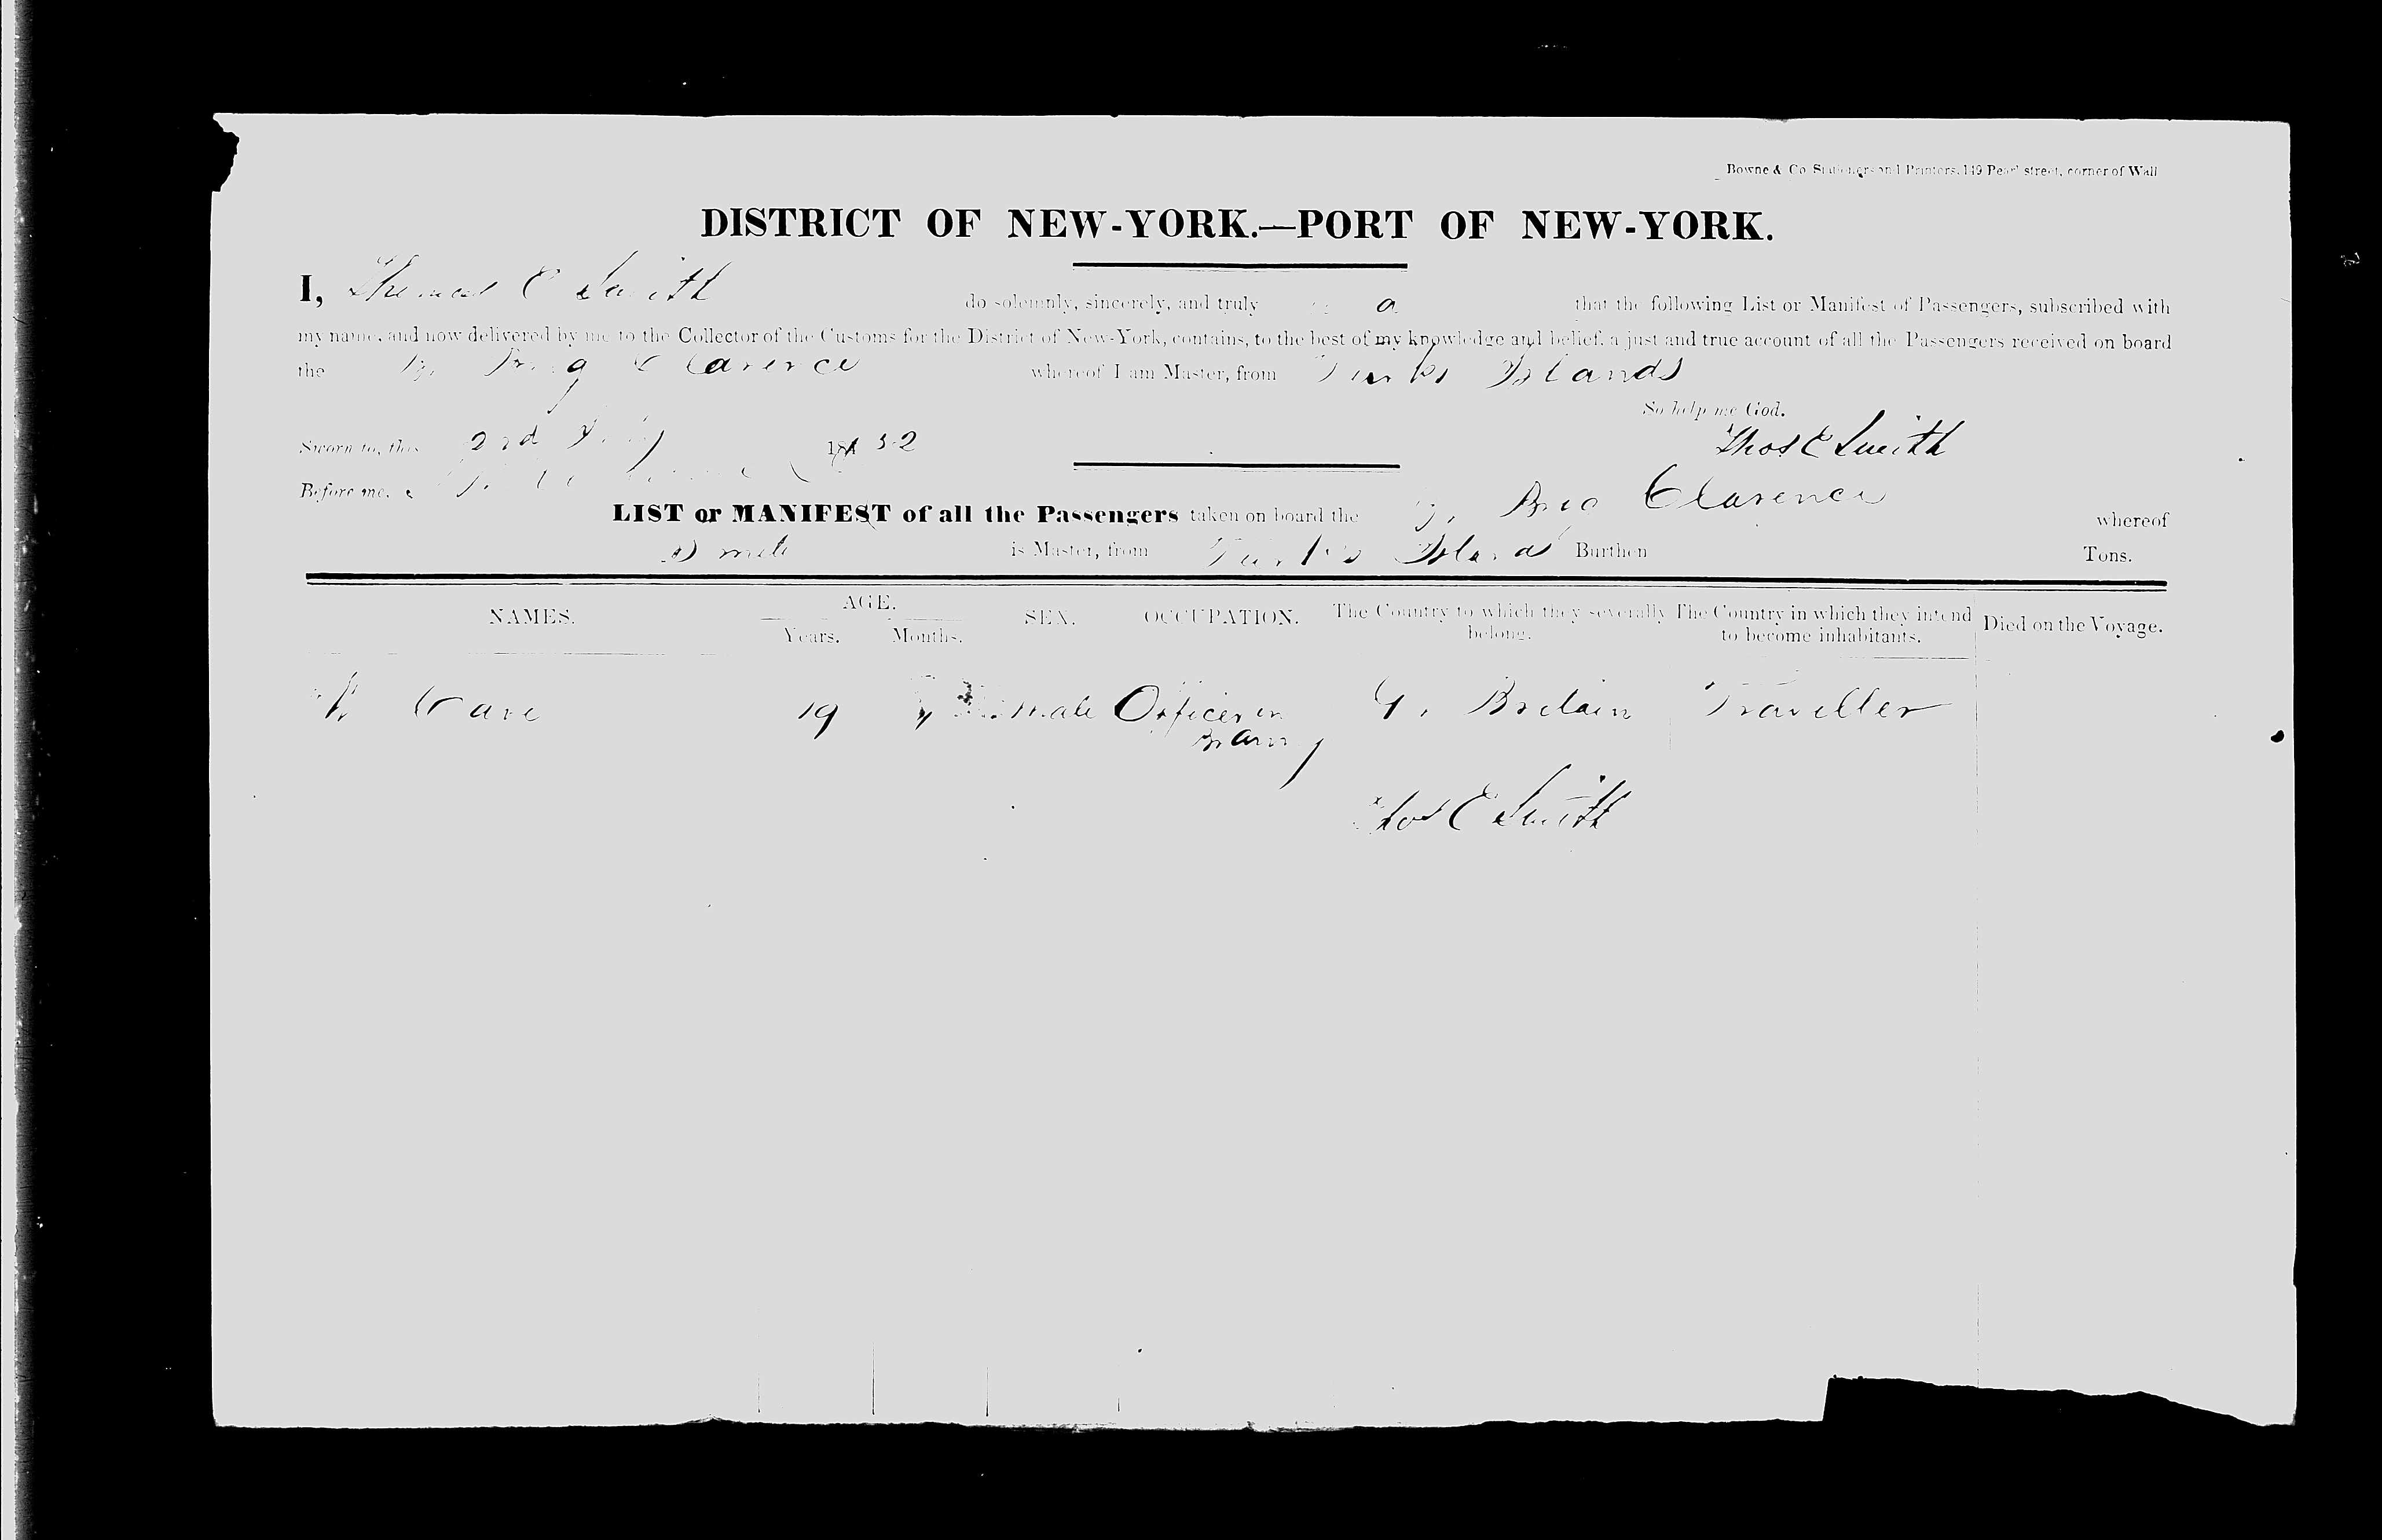 Bowne & Co Stationers and Printers, 149 Pearl street, corner of Wall
DISTRICT OF NEW-YORK.—PORT OF NEW-YORK.
I, Thomas E Smith do solemnly, sincerely, and truly that the following List or Manifest of Passengers, subscribed with
my name, and now delivered by me to the Collector of the Customs for the District of New-York, contains, to the best of my knowledge and belief, a just and true account of all the Passengers received on board
the Brig Clarence whereof I am Master, from Turks Islands
So help me God.
Sworn to, this 2nd 1852 Thos E Smith
Before me,
LIST or MANIFEST of all the Passengers taken on board the Brig Clarence whereof
Smith is Master, from Turks Island Burthen Tons.
NAMES. AGE. SEX. OCCUPATION. The Country to which they severally belong. The Country in which they intend to become inhabitants. Died on the Voyage.
Years. Months.
Cave 19 male Officer in G. Britain Traveller
Army
Thos E Smith